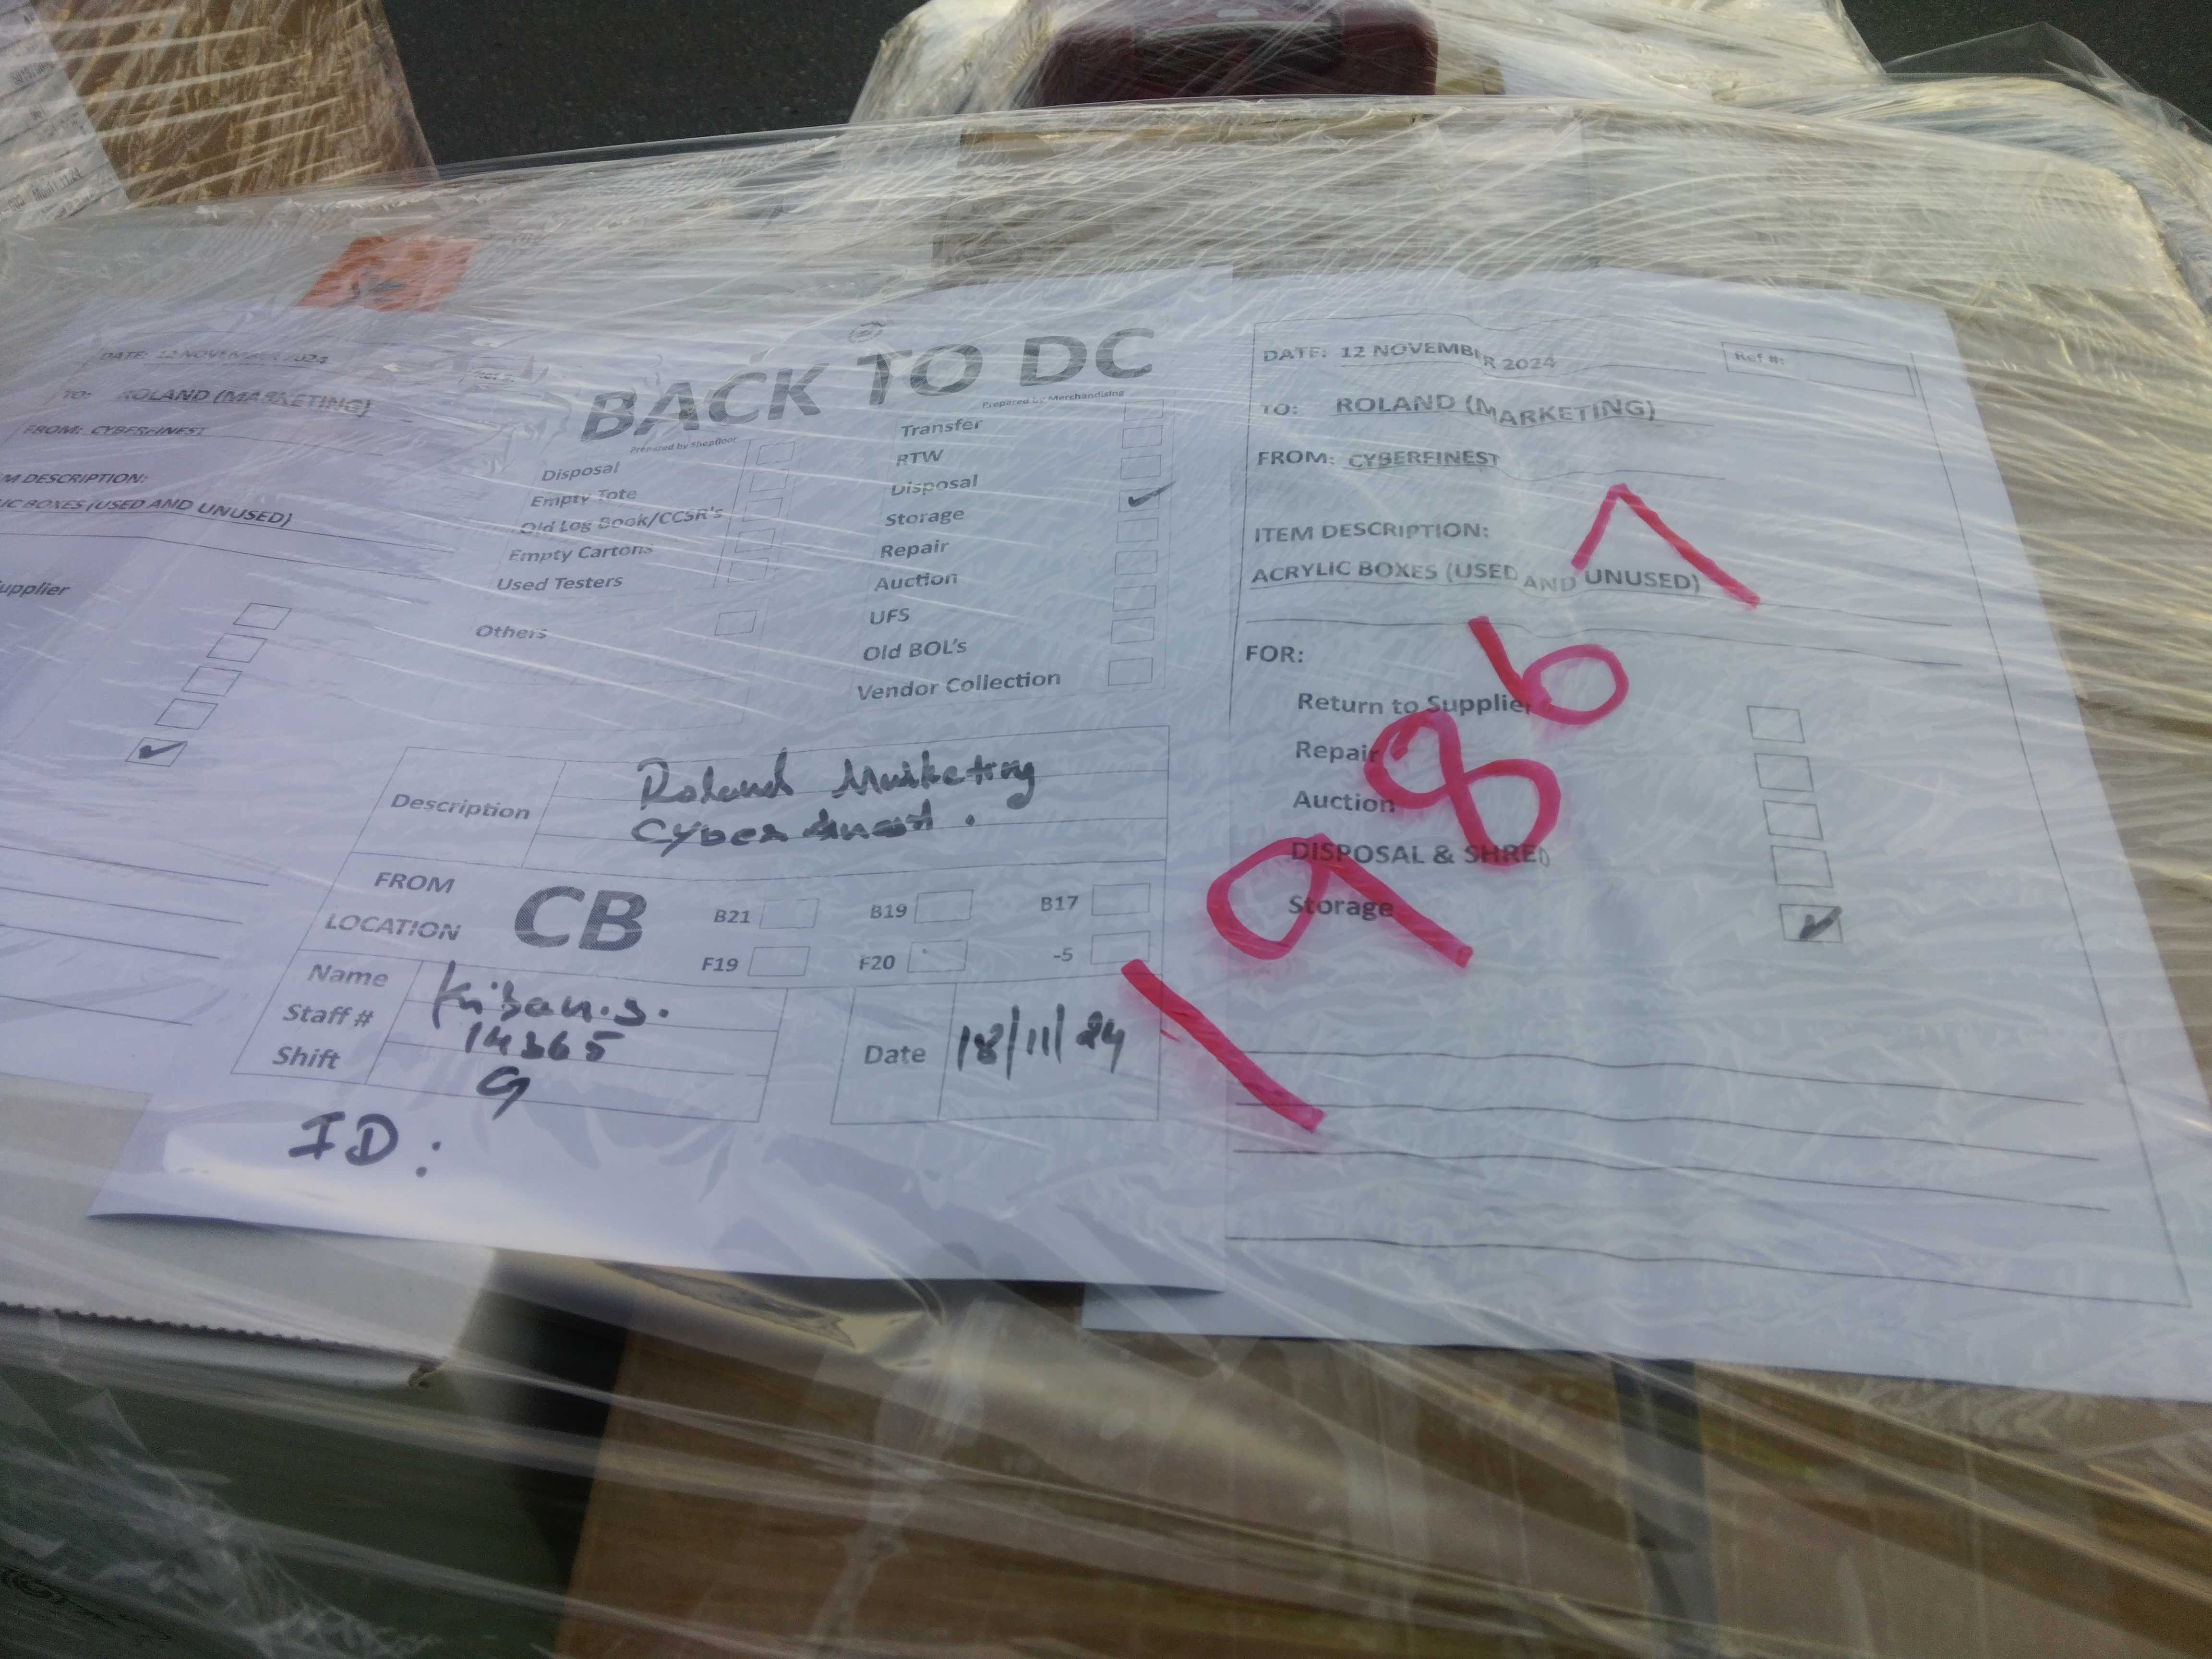 DATE: 12 NOVEMBER 2024
TO: ROLAND (MARKETING)
FROM: CYBERFINEST
M DESCRIPTION:
IC BOXES (USED AND UNUSED)
upplier
BACK TO DC
Prepared by Shopfloor
Disposal
Empty Tote
Old Log Book/CCSR's
Empty Cartons
Used Testers
Others
Prepared by Merchandising
Transfer
RTW
Disposal
Storage
Repair
Auction
UFS
Old BOL's
Vendor Collection
Description
Roland Marketing
Cyber
FROM LOCATION
CB
B21 B19 B17
F19 F20 -5
Name
Staff # 14365
Shift G
Date 18/11/24
ID:
DATE: 12 NOVEMBER 2024
Ref #:
TO: ROLAND (MARKETING)
FROM: CYBERFINEST
ITEM DESCRIPTION:
ACRYLIC BOXES (USED AND UNUSED)
FOR:
Return to Supplier
Repair
Auction
DISPOSAL & SHRED
Storage
19867